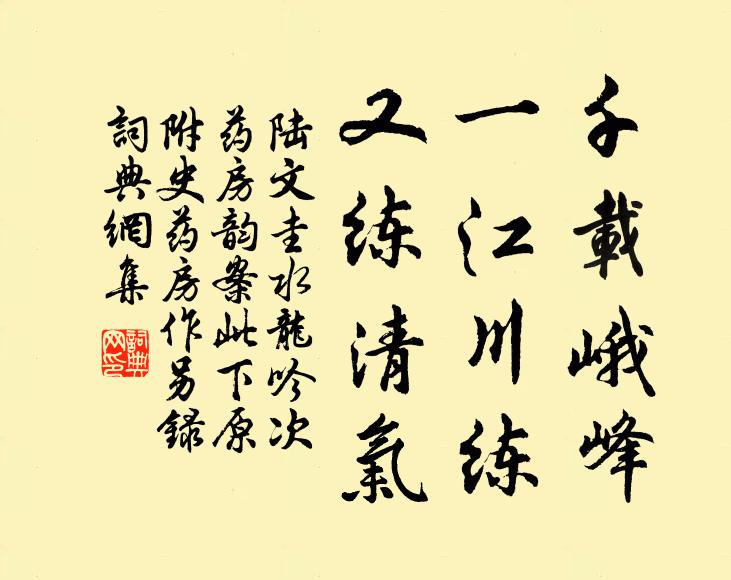 千載峨峰
一江川练
又练清氣
陆文圭水龍吟次
药房韵案此下原
附史药房作另録
詞典網集
詞典
网印